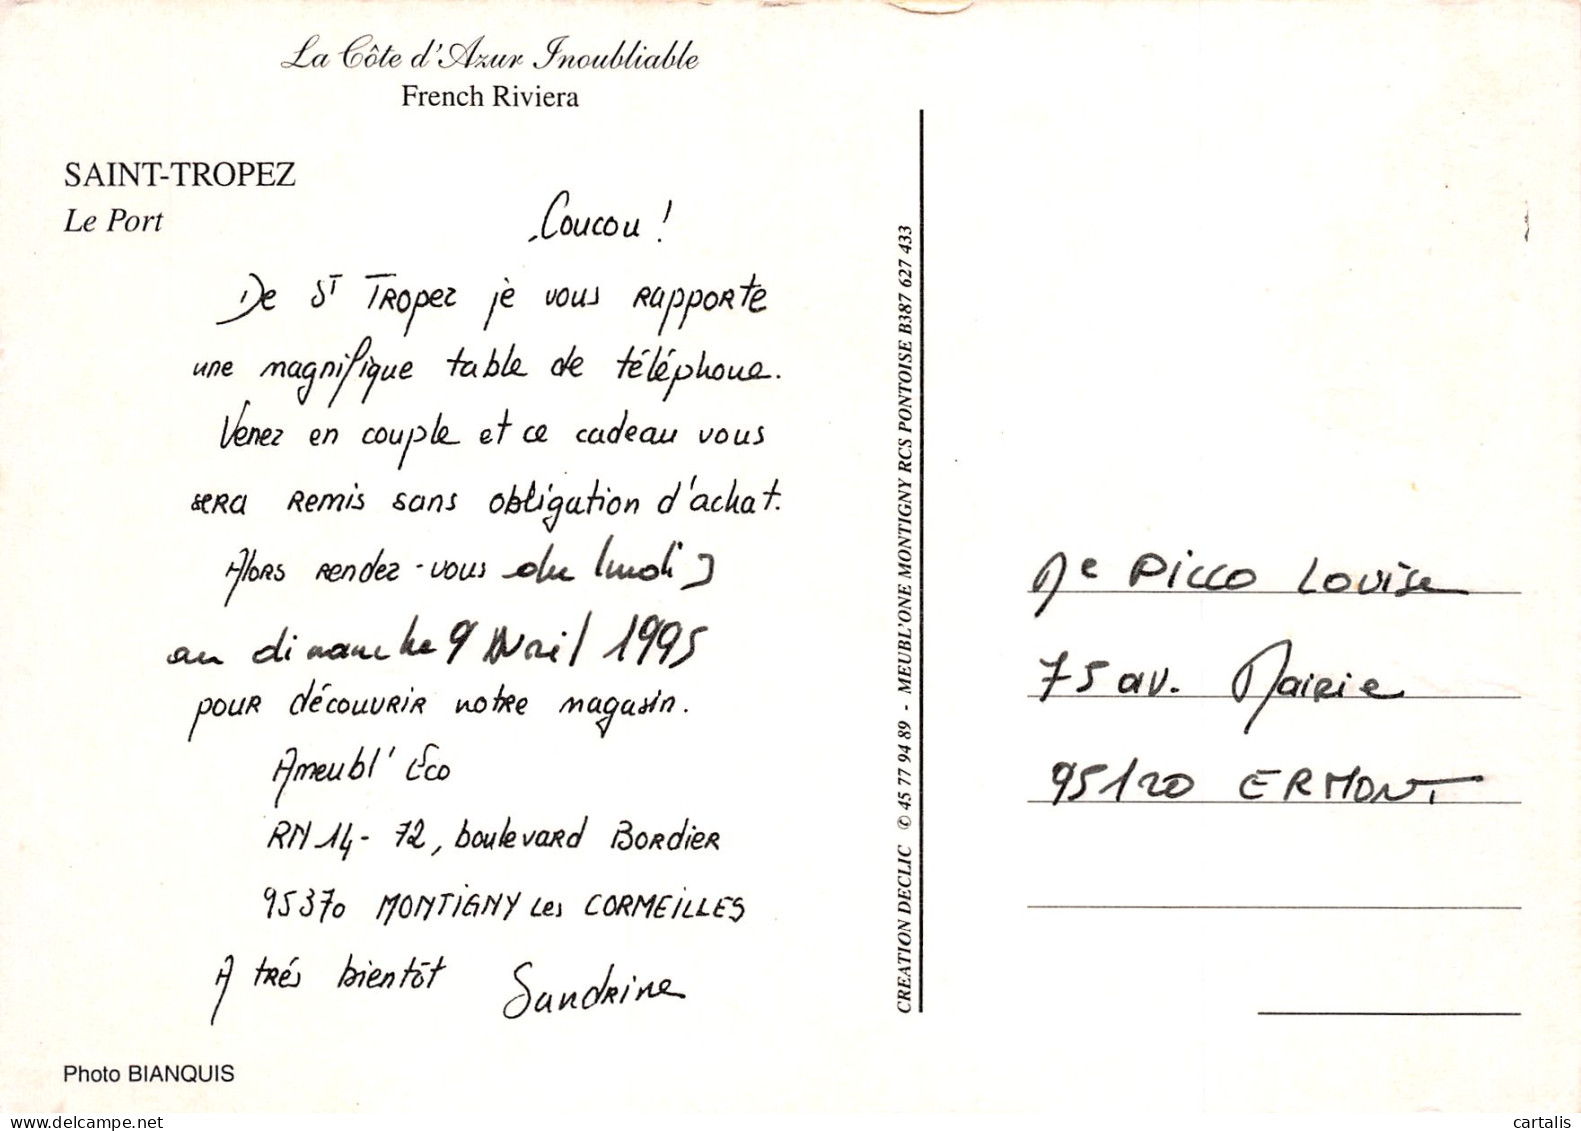 La Côte d'Azur Inoubliable
French Riviera
SAINT-TROPEZ
Le Port
Coucou !
De ST TROPez je vous RAPPORTE
une magnifique table de téléphone.
Venez en couple et ce cadeau vous
seRa Remis sans obligation d'achat.
AloRs Rendez-vous du lundi 3
au dimanche 9 Avril 1995
pouR découvRiR notRe magasin.
Ameubl' Eco
RN 14 - 72, boulevaRd BoRdieR
95370 MONTiGNY Les CORMEiLLES
A tRés bientôt Sandrine
Photo BIANQUIS
CREATION DECLIC © 45 77 94 89 - MEUBL'ONE MONTIGNY RCS PONTOISE B387 627 433
Me PICCO Louise
75 av. Mairie
95120 ERMONT
cartalis